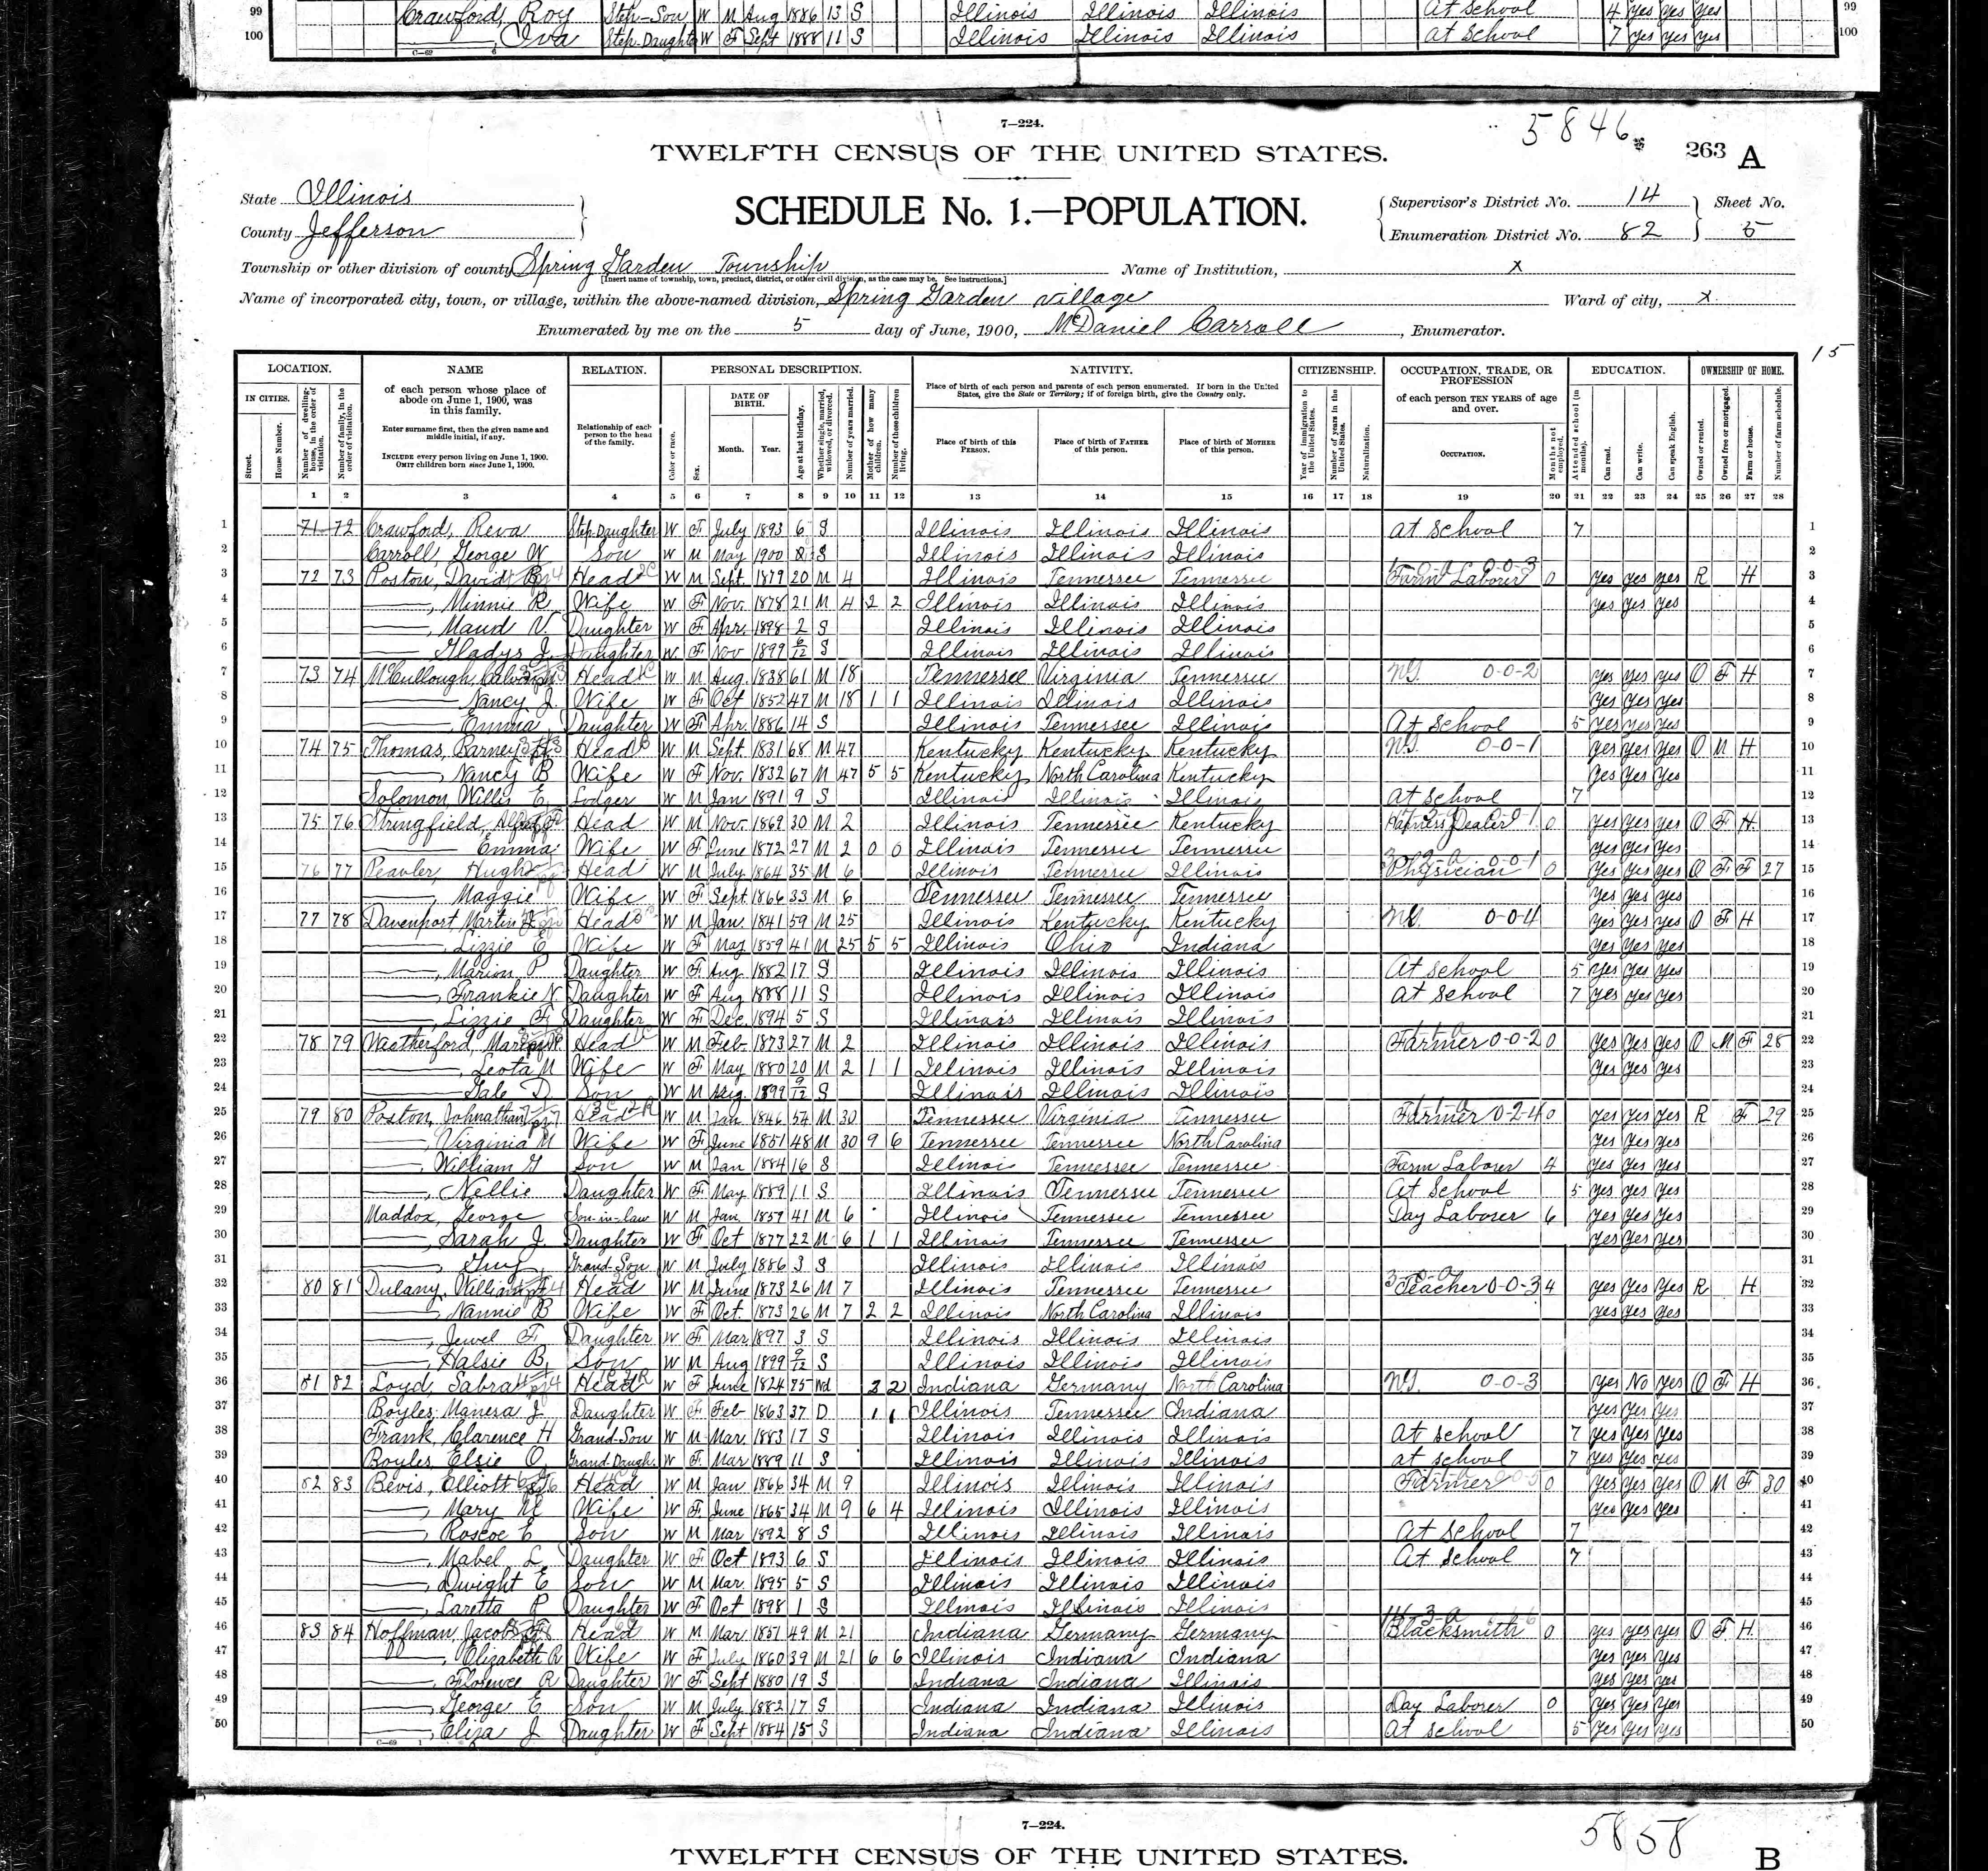 99 Crawford, Roy Step-Son W M Aug 1886 13 S Illinois Illinois Illinois At School 4 yes yes yes 99
100 ——, Iva Step-Daughter W F Sept 1888 11 S Illinois Illinois Illinois At School 7 yes yes yes 100
7—224.
5846
TWELFTH CENSUS OF THE UNITED STATES.
263 A
State Illinois
County Jefferson
SCHEDULE No. 1.—POPULATION.
Supervisor's District No. 14
Enumeration District No. 82
Sheet No. 5
Township or other division of county Spring Garden Township
[Insert name of township, town, precinct, district, or other civil division, as the case may be. See instructions.]
Name of Institution, x
Name of incorporated city, town, or village, within the above-named division, Spring Garden village
Ward of city, x
Enumerated by me on the 5 day of June, 1900, McDaniel Carroll, Enumerator.
15
LOCATION. NAME RELATION. PERSONAL DESCRIPTION. NATIVITY. CITIZENSHIP. OCCUPATION, TRADE, OR PROFESSION EDUCATION. OWNERSHIP OF HOME.
IN CITIES. Street. House Number.
Number of dwelling-house, in the order of visitation.
Number of family, in the order of visitation.
of each person whose place of abode on June 1, 1900, was in this family.
Enter surname first, then the given name and middle initial, if any.
INCLUDE every person living on June 1, 1900. OMIT children born since June 1, 1900.
Relationship of each person to the head of the family.
Color or race. Sex. DATE OF BIRTH. Month. Year. Age at last birthday. Whether single, married, widowed, or divorced. Number of years married. Mother of how many children. Number of these children living.
Place of birth of each person and parents of each person enumerated. If born in the United States, give the State or Territory; if of foreign birth, give the Country only.
Place of birth of this PERSON. Place of birth of FATHER of this person. Place of birth of MOTHER of this person.
Year of immigration to the United States. Number of years in the United States. Naturalization.
of each person TEN YEARS of age and over.
OCCUPATION. Months not employed.
Attended school (in months). Can read. Can write. Can speak English.
Owned or rented. Owned free or mortgaged. Farm or house. Number of farm schedule.
1 2 3 4 5 6 7 8 9 10 11 12 13 14 15 16 17 18 19 20 21 22 23 24 25 26 27 28
1 71 72 Crawford, Reva Step-Daughter W F July 1893 6 S Illinois Illinois Illinois At School 7 1
2 Carroll, George W Son W M May 1900 S Illinois Illinois Illinois 2
3 72 73 Poston, David Head W M Sept. 1879 20 M 4 Illinois Tennessee Tennessee Farm Laborer 0 yes yes yes R H 3
4 ——, Minnie R Wife W F Nov. 1878 21 M 4 2 2 Illinois Illinois Illinois yes yes yes 4
5 ——, Maud V. Daughter W F Apr. 1898 2 S Illinois Illinois Illinois 5
6 ——, Gladys J. Daughter W F Nov 1899 6/12 S Illinois Illinois Illinois 6
7 73 74 McCullough, Head W M Aug. 1838 61 M 18 Tennessee Virginia Tennessee 0-0-2 yes yes yes O F H 7
8 —— Nancy J. Wife W F Oct 1852 47 M 18 1 1 Illinois Illinois Illinois yes yes yes 8
9 —— Emma Daughter W F Apr. 1886 14 S Illinois Tennessee Illinois At School 5 yes yes yes 9
10 74 75 Thomas, Barney Head W M Sept. 1831 68 M 47 Kentucky Kentucky Kentucky 0-0-1 yes yes yes O M H 10
11 ——, Nancy B Wife W F Nov. 1832 67 M 47 5 5 Kentucky North Carolina Kentucky yes yes yes 11
12 Solomon, Willis E, Lodger W M Jan 1891 9 S Illinois Illinois Illinois At School 7 12
13 75 76 Stringfield Head W M Nov. 1869 30 M 2 Illinois Tennessee Kentucky Harness Dealer 0 yes yes yes O F H. 13
14 —— Emma Wife W F June 1872 27 M 2 0 0 Illinois Tennessee Tennessee yes yes yes 14
15 76 77 Peavler, Hugh Head W M July 1864 35 M 6 Illinois Tennessee Illinois Physician 0 yes yes yes O F F 27 15
16 ——, Maggie Wife W F Sept. 1866 33 M 6 Tennessee Tennessee Tennessee yes yes yes 16
17 77 78 Davenport, Martin Head W M Jan. 1841 59 M 25 Illinois Kentucky Kentucky 0-0-4 yes yes yes O F H 17
18 ——, Lizzie E Wife W F May 1859 41 M 25 5 5 Illinois Ohio Indiana yes yes yes 18
19 ——, Marion P Daughter W F Aug. 1882 17 S Illinois Illinois Illinois At School 5 yes yes yes 19
20 ——, Frankie N Daughter W F Aug 1888 11 S Illinois Illinois Illinois At School 7 yes yes yes 20
21 ——, Lizzie F Daughter W F Dec. 1894 5 S Illinois Illinois Illinois 21
22 78 79 Weatherford, Head W M Feb 1873 27 M 2 Illinois Illinois Illinois Farmer 0-0-2 0 yes yes yes O M F 28 22
23 ——, Leota M Wife W F May 1880 20 M 2 1 1 Illinois Illinois Illinois yes yes yes 23
24 ——, Gale D. Son W M Aug. 1899 9/12 S Illinois Illinois Illinois 24
25 79 80 Poston, Johnathan Head W M Jan 1846 54 M 30 Tennessee Virginia Tennessee Farmer 0-2-4 0 yes yes yes R F 29 25
26 ——, Virginia M Wife W F June 1851 48 M 30 9 6 Tennessee Tennessee North Carolina yes yes yes 26
27 ——, William G Son W M Jan 1884 16 S Illinoi Tennessee Tennessee Farm Laborer 4 yes yes yes 27
28 ——, Nellie Daughter W F May 1889 11 S Illinois Tennessee Tennessee At School 5 yes yes yes 28
29 Maddox, George Son-in-law W M Jan 1859 41 M 6 Illinois Tennessee Tennessee Day Laborer 6 yes yes yes 29
30 ——, Sarah J. Daughter W F Oct 1877 22 M 6 1 1 Illinois Tennessee Tennessee yes yes yes 30
31 ——, Guy Grand-Son W M July 1886 3 S Illinois Illinois Illinois 31
32 80 81 Dulany, William Head W M June 1873 26 M 7 Illinois Tennessee Tennessee Teacher 0-0-3 4 yes yes yes R H 32
33 ——, Nannie B Wife W F Oct. 1873 26 M 7 2 2 Illinois North Carolina Illinois yes yes yes 33
34 ——, Jewel F Daughter W F Mar 1897 3 S Illinois Illinois Illinois 34
35 ——, Halsie B, Son W M Aug 1899 9/12 S Illinois Illinois Illinois 35
36 81 82 Loyd, Sabra Head W F June 1824 75 Wd 2 Indiana Germany North Carolina 0-0-3 yes No yes O F H 36
37 Boyles, Manera J Daughter W F Feb 1863 37 D 1 1 Illinois Tennessee Indiana yes yes yes 37
38 Frank, Clarence H Grand-Son W M Mar. 1883 17 S Illinois Illinois Illinois At school 7 yes yes yes 38
39 Boyles, Elsie O, Grand-Daugh. W F. Mar 1889 11 S Illinois Illinois Illinois at school 7 yes yes yes 39
40 82 83 Bevis, Elliott Head W M Jan 1866 34 M 9 Illinois Illinois Illinois Farmer 0 yes yes yes O M F 30 40
41 ——, Mary M Wife W F June 1865 34 M 9 6 4 Illinois Illinois Illinois yes yes yes 41
42 ——, Roscoe E Son W M Mar 1892 8 S Illinois Illinois Illinois At School 7 42
43 ——, Mabel L. Daughter W F Oct. 1893 6 S Illinois Illinois Illinois At School 7 43
44 ——, Dwight E Son W M Mar. 1895 5 S Illinois Illinois Illinois 44
45 ——, Laretta P Daughter W F Oct 1898 1 S Illinois Illinois Illinois 45
46 83 84 Hoffman, Jacob Head W M Mar 1851 49 M 21 Indiana Germany Germany Blacksmith 0 yes yes yes O F H. 46
47 ——, Elizabeth R Wife W F July 1860 39 M 21 6 6 Illinois Indiana Indiana yes yes yes 47
48 ——, Florence R Daughter W F Sept 1880 19 S Indiana Indiana Illinois yes yes yes 48
49 ——, George E Son W M July 1882 17 S Indiana Indiana Illinois Day Laborer 0 yes yes yes 49
50 ——, Eliza J Daughter W F Sept 1884 15 S Indiana Indiana Illinois At school 5 yes yes yes 50
7—224.
5858
TWELFTH CENSUS OF THE UNITED STATES.
B